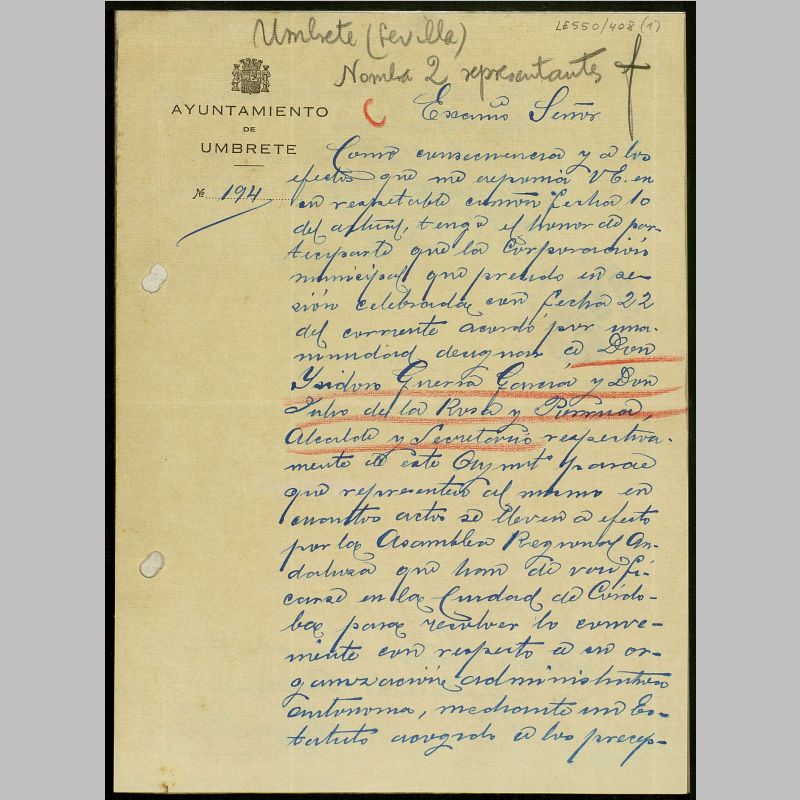 LE550/408 (1)
Umbrete (Sevilla)
Nombra 2 representantes
AYUNTAMIENTO
DE
UMBRETE
Nº 194
Excmo Señor
Como consecuencia y a los
efectos que me exponia V.E. en
su respetable comon fecha 10
del actual, tengo el honor de par-
ticiparle que la Corporación
municipal que presido en se-
sión celebrada con fecha 22
del corriente acordó por una-
nimidad designar a Don
Ysidoro Guerra Garcia y Don
Julio de la Rosa y
Alcalde y Secretario respectiva-
mente de este Aymtº para
que representen al mismo en
cuantos actos se lleven a efecto
por la Asamblea Regional An-
daluza que han de verifi-
carse en la Ciudad de Córdo-
ba para resolver lo conve-
niente con respecto a su or-
ganización administrativa
autonoma, mediante un Es-
tatuto acogido a los precep-